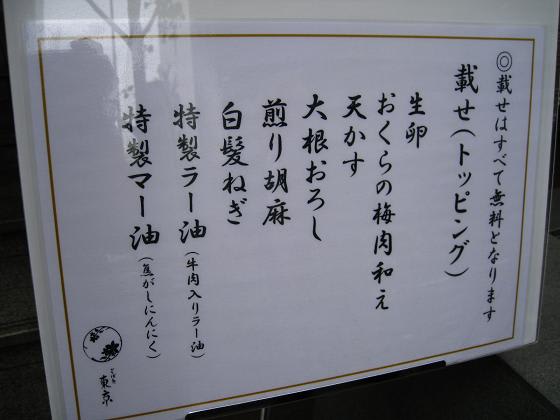 ◎載せはすべて無料となります
載せ(トッピング)
生卵
おくらの梅肉和え
天かす
大根おろし
煎り胡麻
白髪ねぎ
特製ラー油(牛肉入りラー油)
特製マー油(焦がしにんにく)
東京